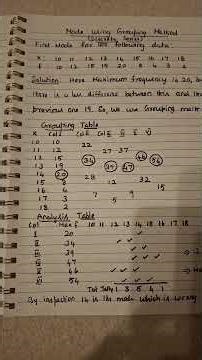 Mode using Grouping Method
(Discrete Series)
Find Mode for the following data:
X : 10 11 12 13 14 15 16 17 18
f : 10 12 15 19 20 8 4 3 2
Solution: Here Maximum frequency is 20, b
there is a less difference between this and th
previous one 19. So, we use Grouping meth
Grouping Table
X Col I Col II Col III IV V VI
10 10
22
11 12
27 37
12 15
34 46 54
13 19
39 47
14 20
28 32
15 8
12 15
16 4
7 9
17 3
5
18 2
Analysis Table
Col Max f 10 11 12 13 14 15 16 17 18
I 20 ✓
II 34 ✓ ✓
III 39 ✓ ✓
IV 47 ✓ ✓ ✓
V 46
VI 54 ✓ ✓ ✓
Total Tally 1 3 5 4 1
By inspection 14 is the mode which is wrong